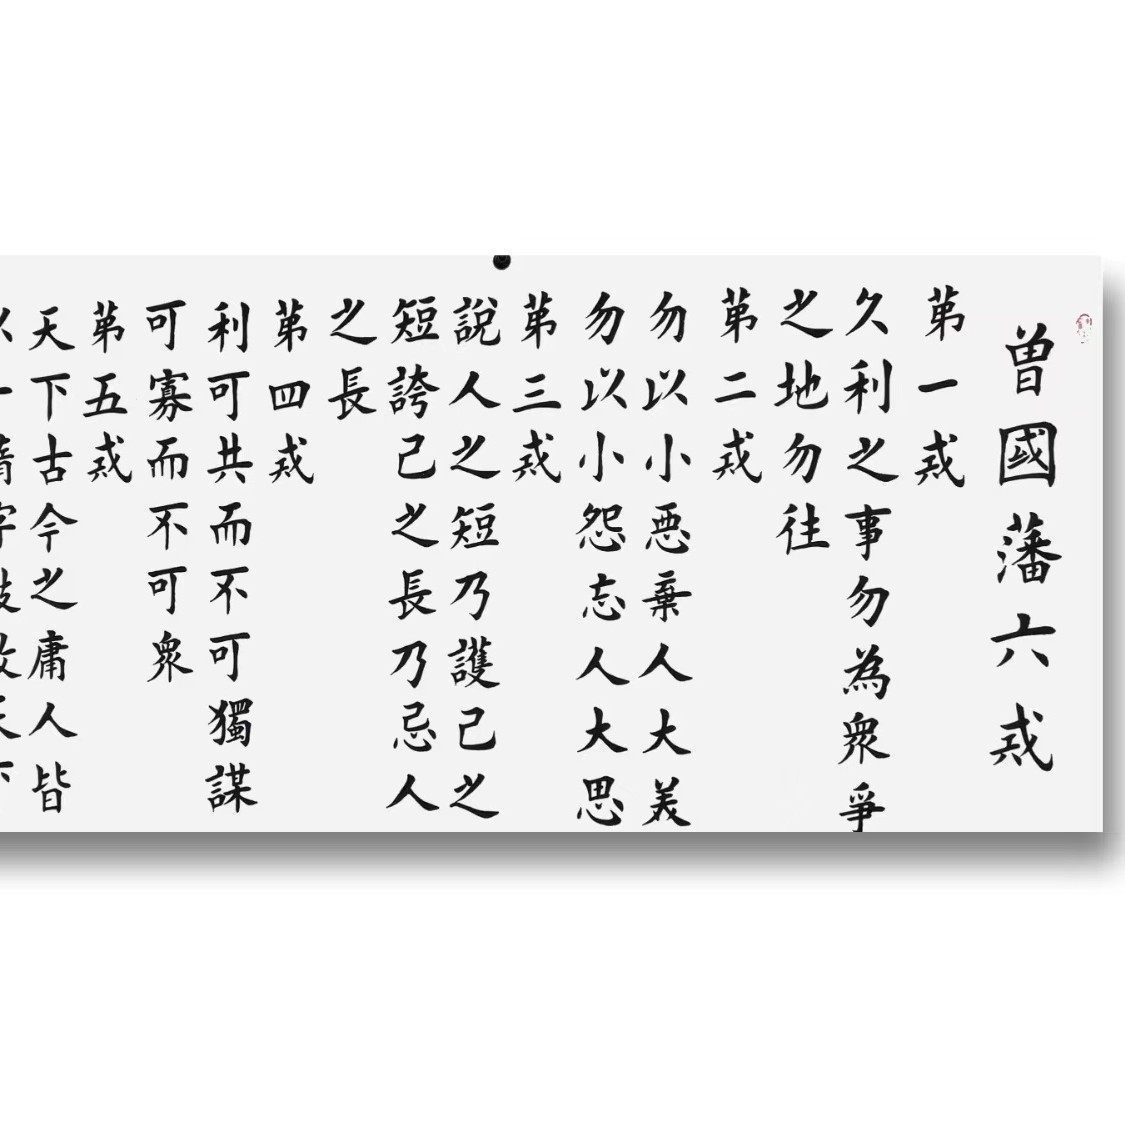 曾國藩六戒
第一戒
久利之事勿為眾爭
之地勿往
第二戒
勿以小惡棄人大美
勿以小怨忘人大恩
第三戒
說人之短乃護己之
短誇己之長乃忌人
之長
第四戒
利可共而不可獨謀
可寡而不可眾
第五戒
天下古今之庸人皆